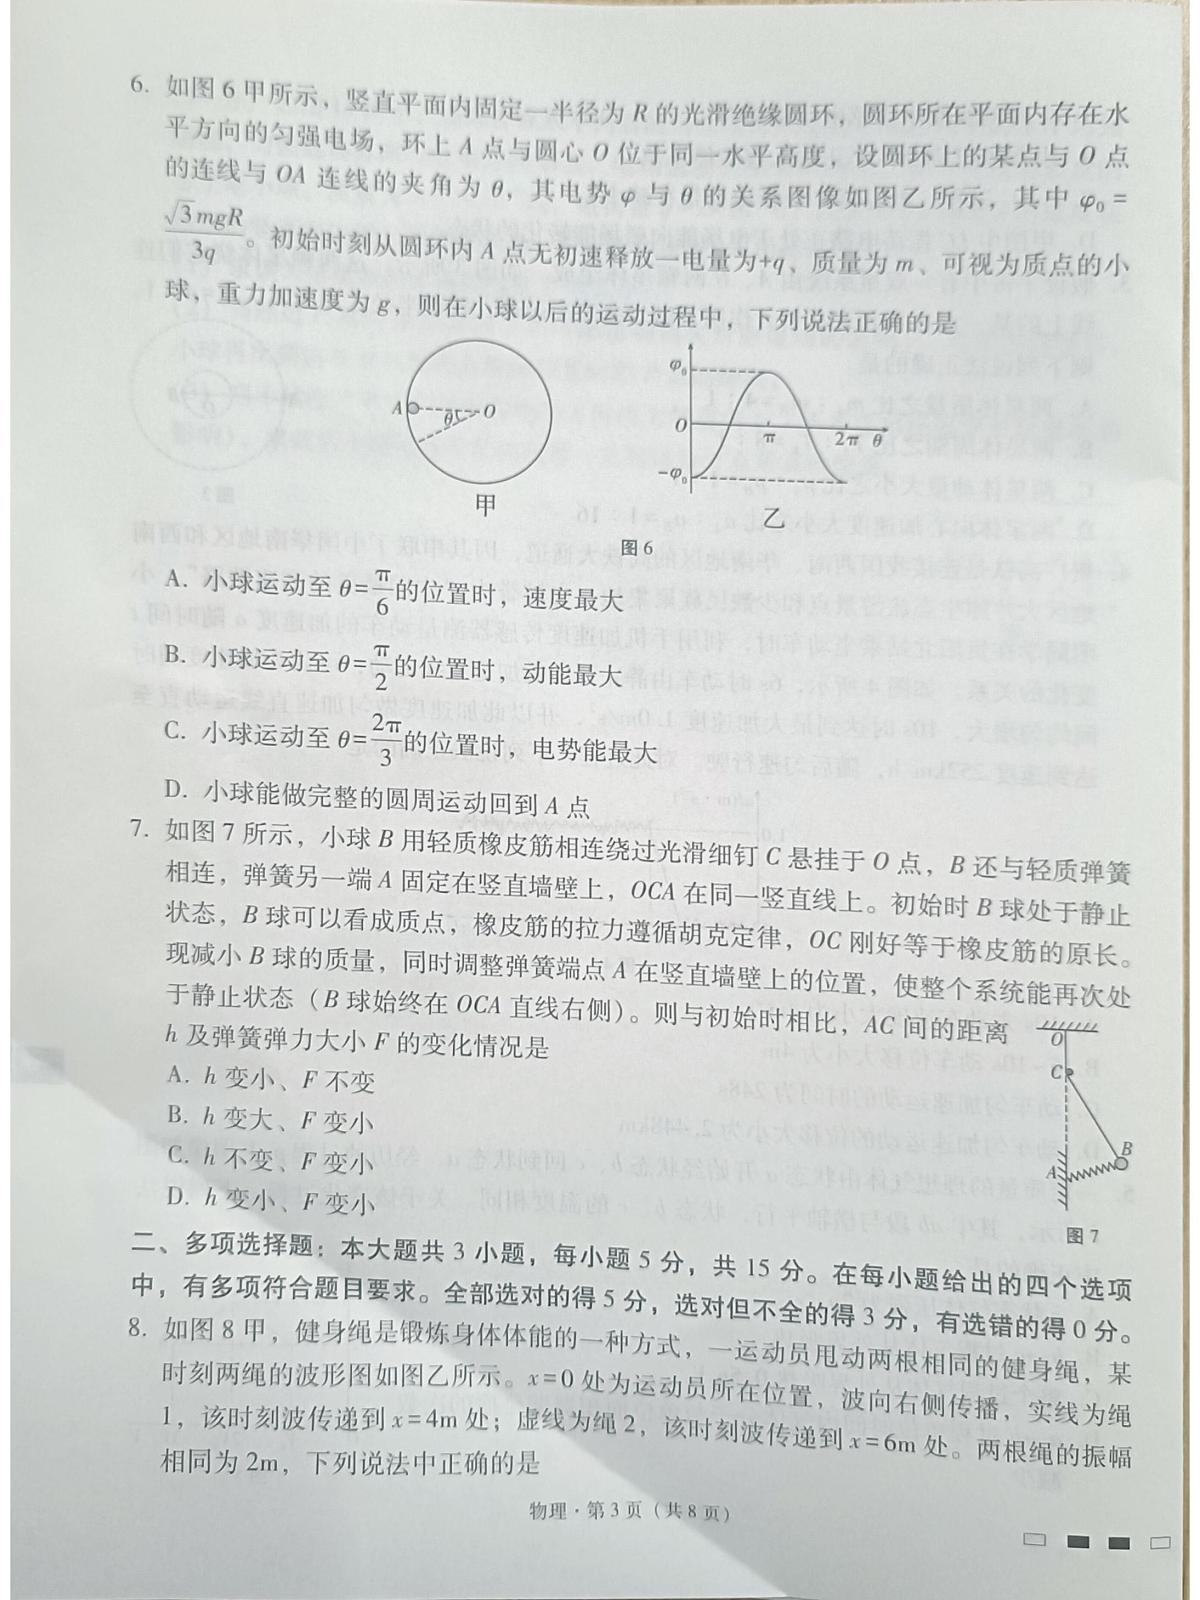 6. 如图 6 甲所示，竖直平面内固定一半径为 R 的光滑绝缘圆环，圆环所在平面内存在水
平方向的匀强电场，环上 A 点与圆心 O 位于同一水平高度，设圆环上的某点与 O 点
的连线与 OA 连线的夹角为 θ，其电势 φ 与 θ 的关系图像如图乙所示，其中 φ₀ =
√3mgR/3q。初始时刻从圆环内 A 点无初速释放一电量为+q、质量为 m、可视为质点的小
球，重力加速度为 g，则在小球以后的运动过程中，下列说法正确的是
A
θ
O
甲
φ₀
O
-φ₀
π
2π
θ
乙
图 6
A. 小球运动至 θ=π/6的位置时，速度最大
B. 小球运动至 θ=π/2的位置时，动能最大
C. 小球运动至 θ=2π/3的位置时，电势能最大
D. 小球能做完整的圆周运动回到 A 点
7. 如图 7 所示，小球 B 用轻质橡皮筋相连绕过光滑细钉 C 悬挂于 O 点，B 还与轻质弹簧
相连，弹簧另一端 A 固定在竖直墙壁上，OCA 在同一竖直线上。初始时 B 球处于静止
状态，B 球可以看成质点，橡皮筋的拉力遵循胡克定律，OC 刚好等于橡皮筋的原长。
现减小 B 球的质量，同时调整弹簧端点 A 在竖直墙壁上的位置，使整个系统能再次处
于静止状态（B 球始终在 OCA 直线右侧）。则与初始时相比，AC 间的距离
h 及弹簧弹力大小 F 的变化情况是
A. h 变小、F 不变
B. h 变大、F 变小
C. h 不变、F 变小
D. h 变小、F 变小
O
C
B
A
图 7
二、多项选择题：本大题共 3 小题，每小题 5 分，共 15 分。在每小题给出的四个选项
中，有多项符合题目要求。全部选对的得 5 分，选对但不全的得 3 分，有选错的得 0 分。
8. 如图 8 甲，健身绳是锻炼身体体能的一种方式，一运动员甩动两根相同的健身绳，某
时刻两绳的波形图如图乙所示。x=0 处为运动员所在位置，波向右侧传播，实线为绳
1，该时刻波传递到 x=4m 处；虚线为绳 2，该时刻波传递到 x=6m 处。两根绳的振幅
相同为 2m，下列说法中正确的是
物理·第 3 页（共 8 页）